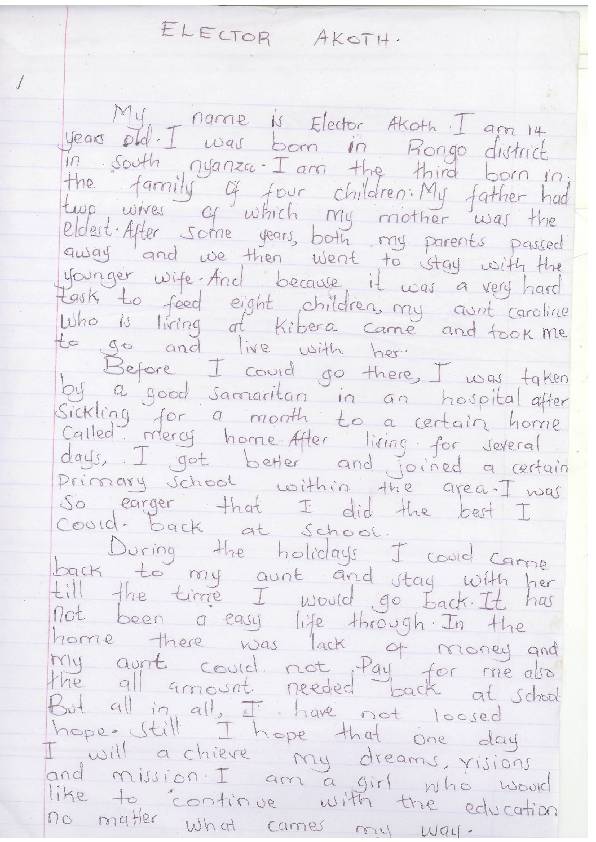 ELECTOR AKOTH.
1
My name is Elector Akoth. I am 14
years old. I was born in Rongo district
in South nyanza. I am the third born in
the family of four children. My father had
two wives of which my mother was the
eldest. After some years, both my parents passed
away and we then went to stay with the
younger wife. And because it was a very hard
task to feed eight children, my aunt caroline
who is living at Kibera came and took me
to go and live with her.
Before I could go there, I was taken
by a good samaritan in an hospital after
Sickling for a month to a certain home
called mercy home. After living for several
days, I got better and joined a certain
primary school within the area. I was
so earger that I did the best I
could back at school.
During the holidays I could came
back to my aunt and stay with her
till the time I would go back. It has
not been a easy life through. In the
home there was lack of money and
my aunt could not Pay for me also
the all amount needed back at school
But all in all, I have not loosed
hope. Still I hope that one day
I will achieve my dreams, visions
and mission. I am a girl who would
like to continue with the education
no matter what cames my way.